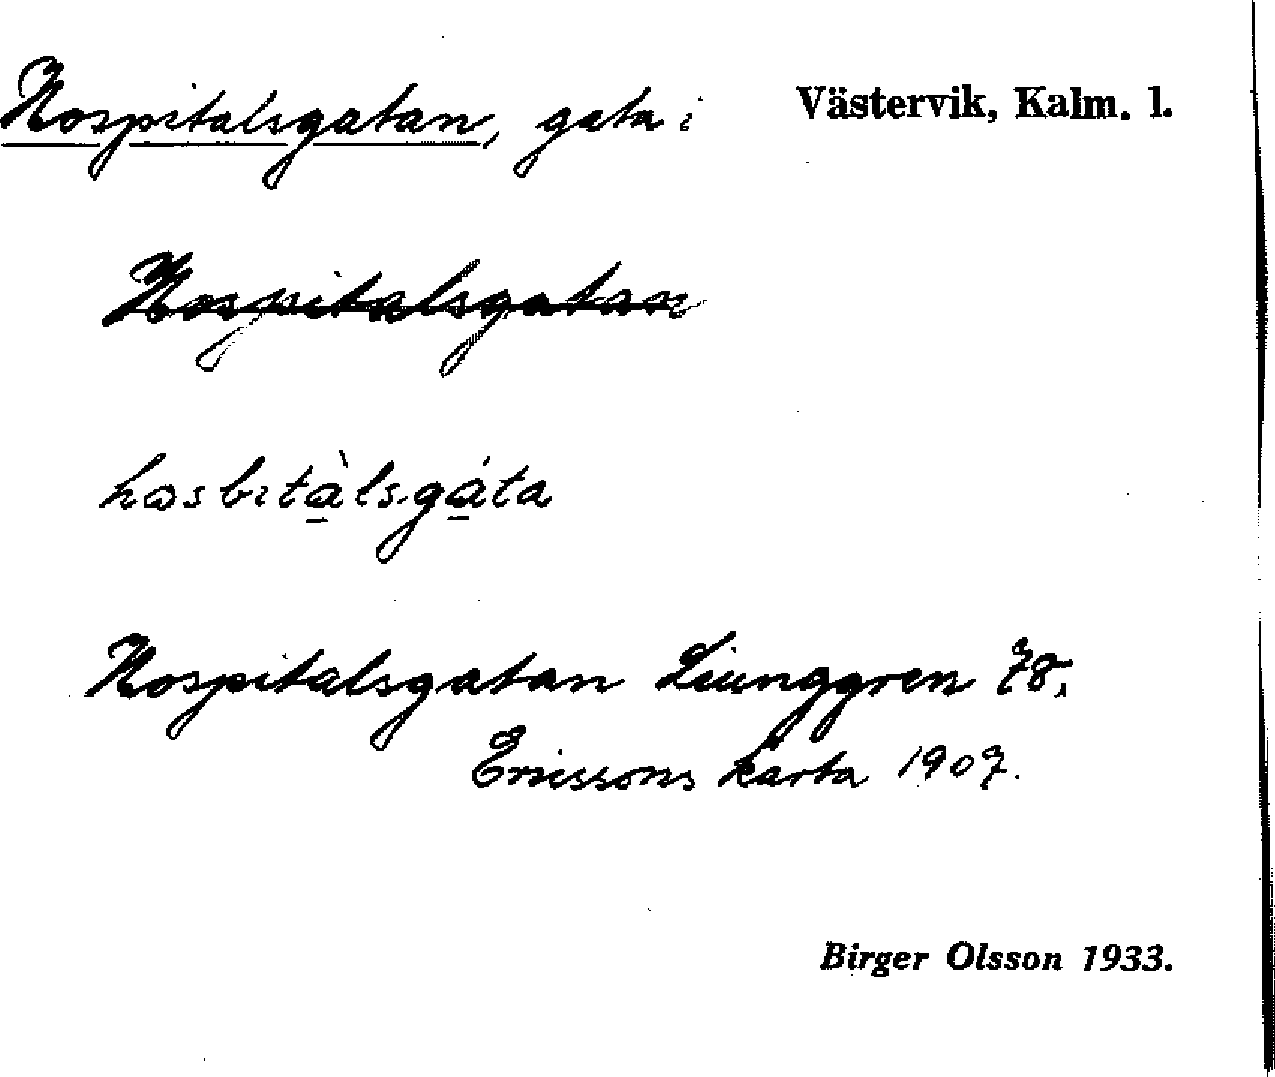 Hospitalsgatan, gata i Västervik, Kalm. l.
Hospitalsgatan
hosbitàlsgáta
Hospitalsgatan Ljunggren 78,
Ericssons karta 1907.
Birger Olsson 1933.